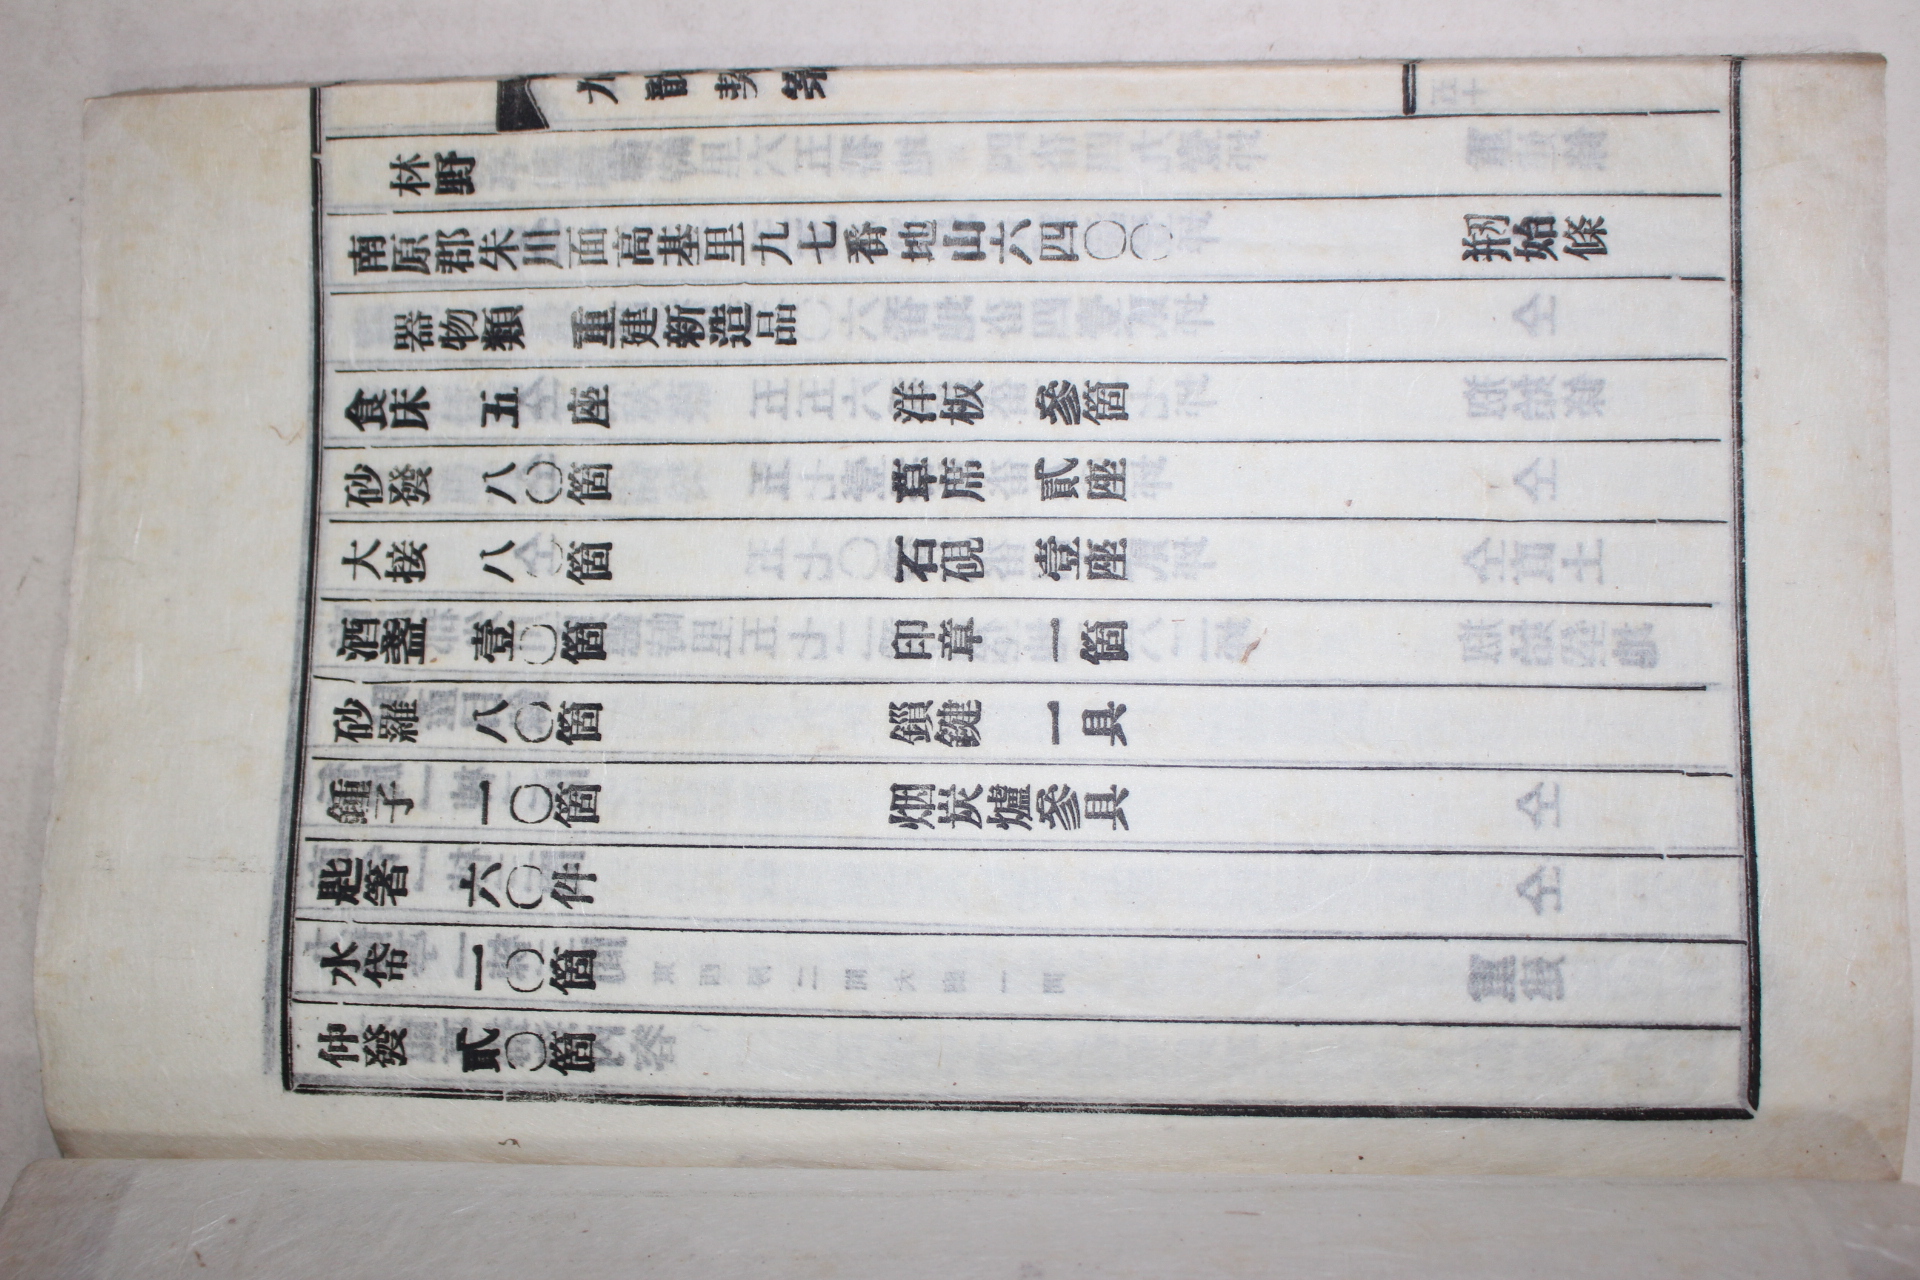 林野
南原郡朱川面高基里九七番地山六四〇〇 刱始條
器物類 重建新造品
食床 五座 洋板 參箇
砂發 八〇箇 草席 貳座
大接 八〇箇 石硯 壹座
酒盞 壹〇箇 印章 一箇
砂羅 八〇箇 鎖鍵 一具
鍾子 一〇箇 烟炭爐參具
匙箸 六〇件
水帒 一〇箇
仲發 貳〇箇